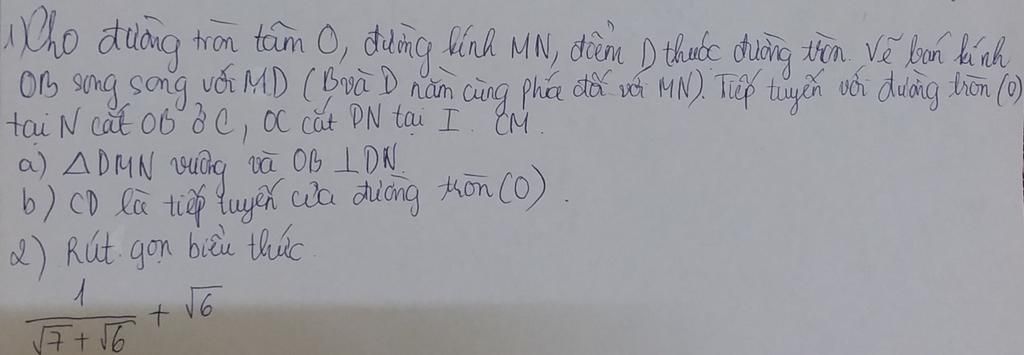 1) Cho đường tròn tâm O, đường kính MN, điểm D thuộc đường tròn. Vẽ bán kính
OB song song với MD (B và D nằm cùng phía đối với MN). Tiếp tuyến với đường tròn (O)
tại N cắt OB ở C, OC cắt DN tại I. CM.
a) △DMN vuông và OB ⊥ DN.
b) CD là tiếp tuyến của đường tròn (O).
2) Rút gọn biểu thức.
1/(√7 + √6) + √6